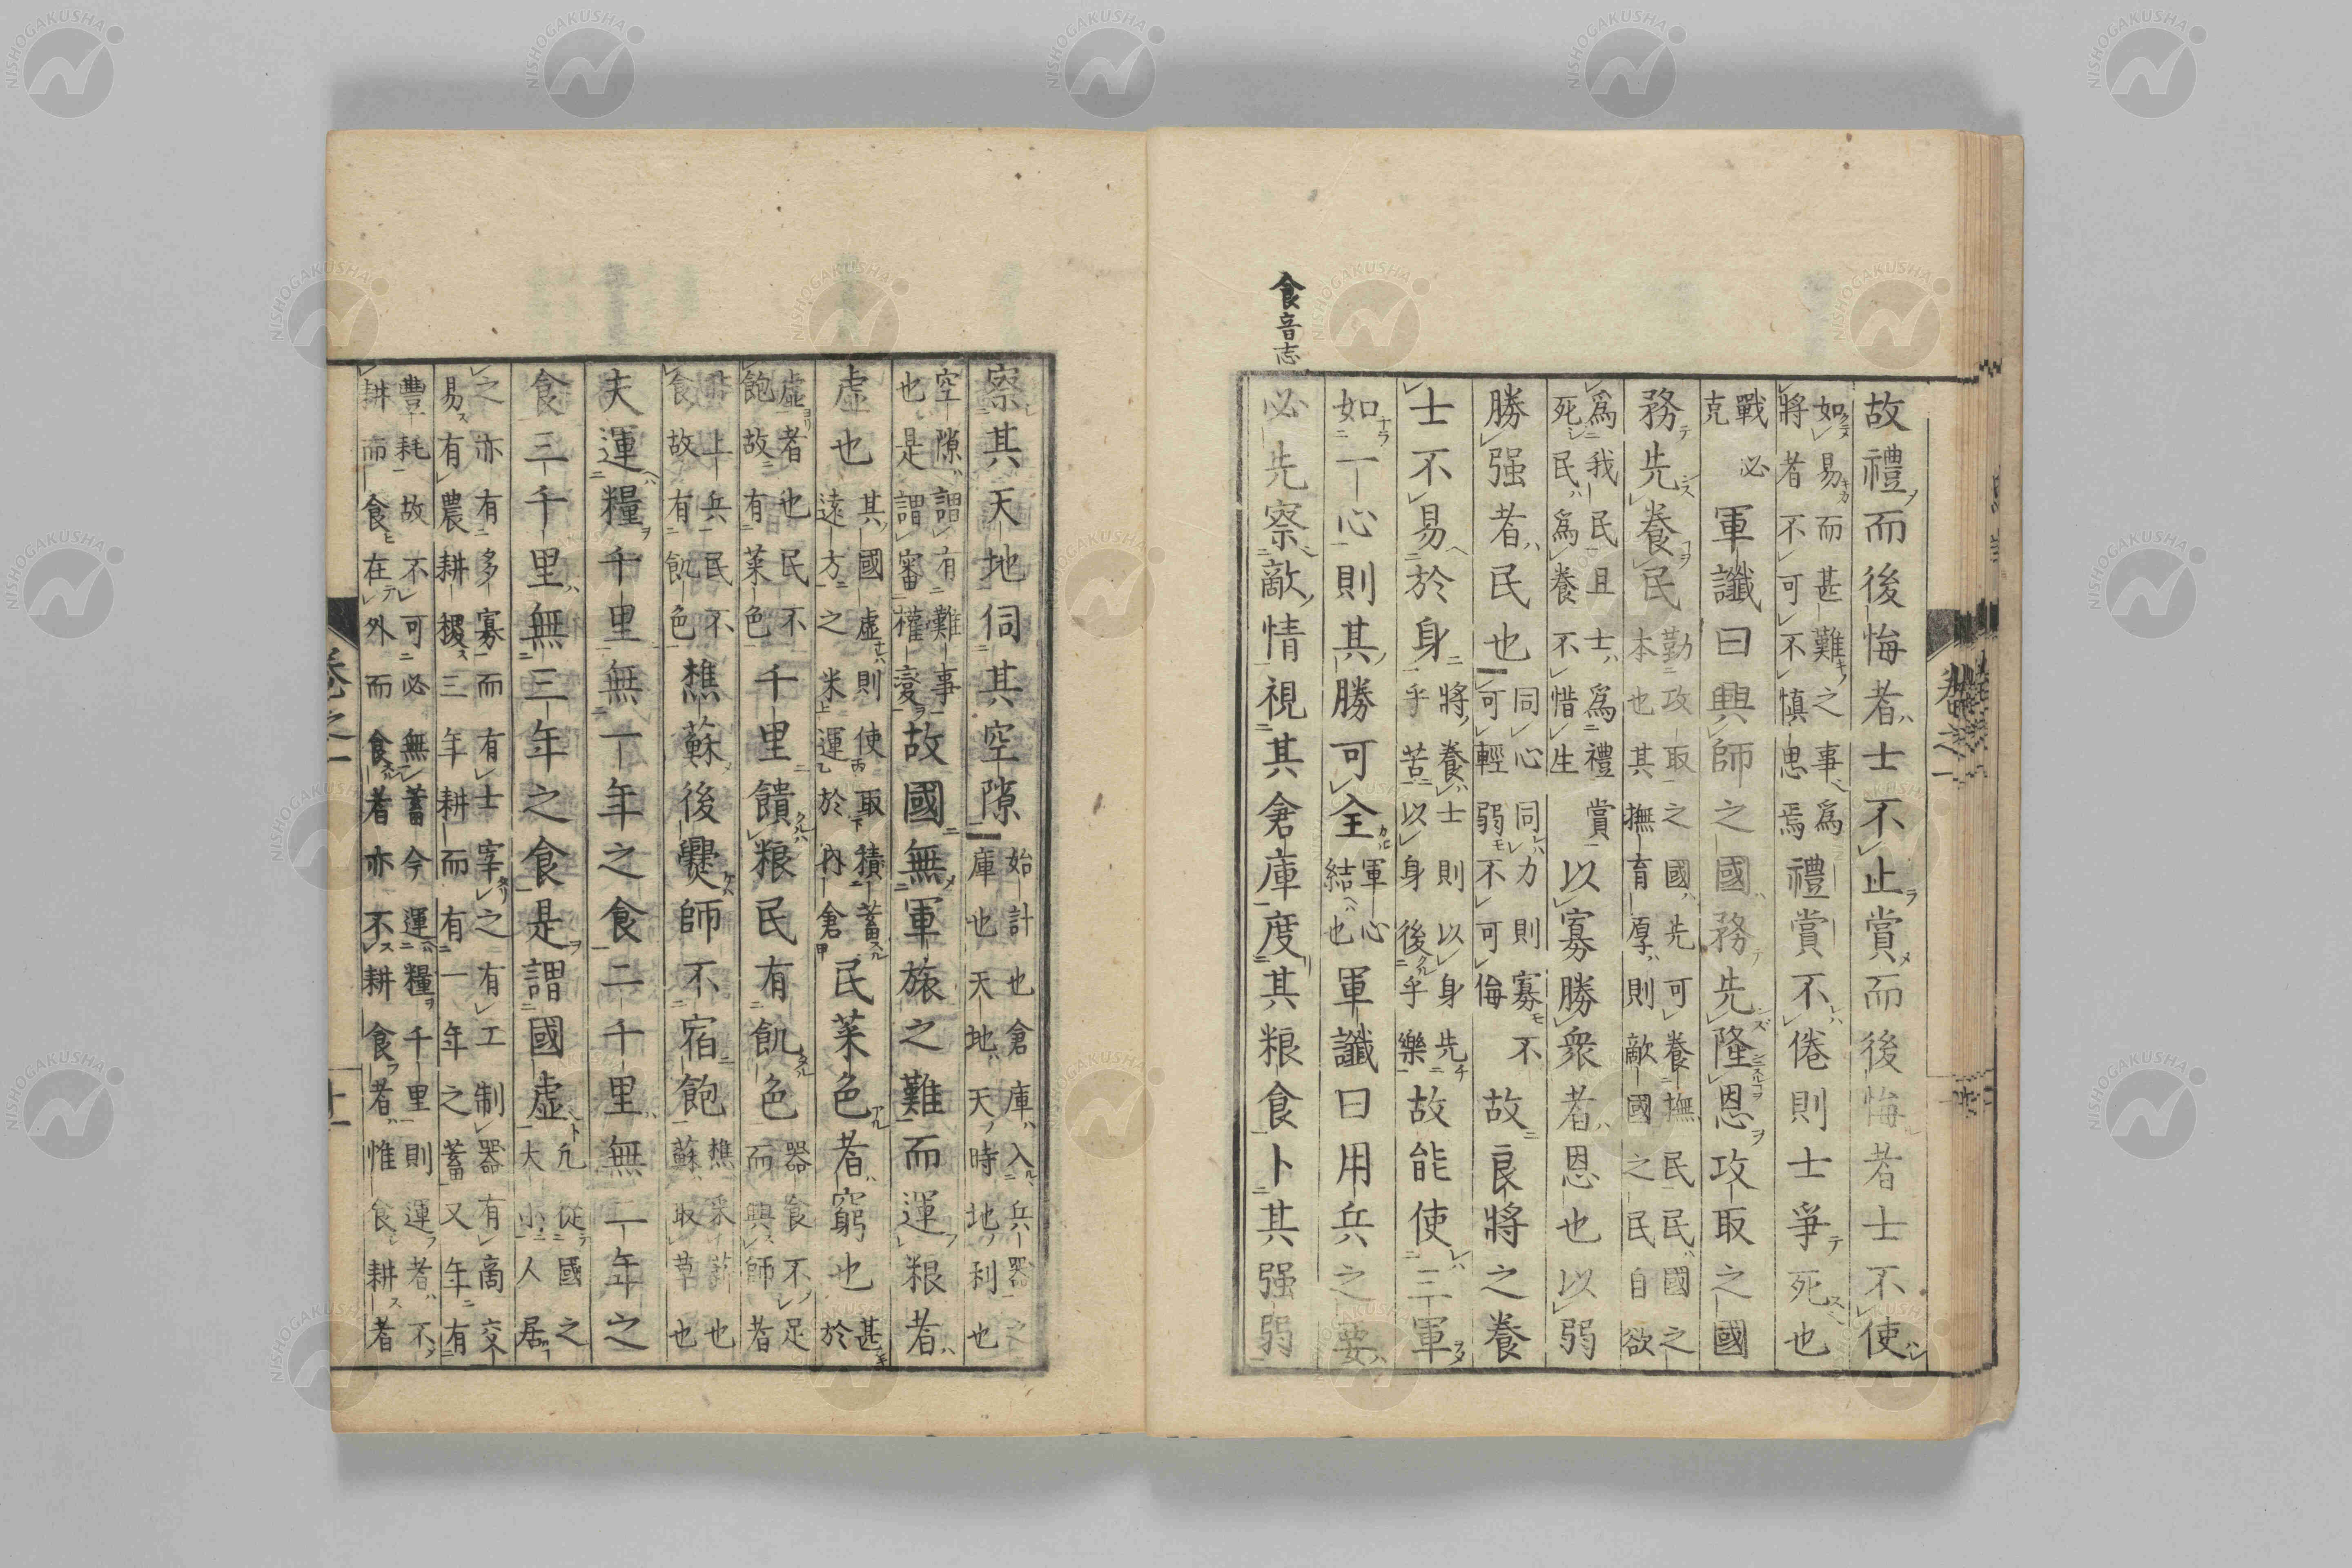 食音志
故禮而後悔者士不止賞而後悔者士不使
如易而甚難之事為
將者不可不慎思焉
禮賞不倦則士爭死也
戰必
克
軍讖曰興師之國務先隆恩攻取之國
務先養民
勤攻取之國先可養撫民民國之
本也其撫育厚則敵國之民自欲
為我民且士為禮賞
死民為養不惜生
以寡勝衆者恩也以弱
勝强者民也
同心同力則寡不
可輕弱不可侮
故良將之養
士不易於身
將養士則以身先
乎苦以身後乎樂
故能使三軍
如一心則其勝可全
軍心
結也
軍讖曰用兵之要
必先察敵情視其倉庫度其粮食卜其强弱
察其天地伺其空隙
始計也倉庫入兵器之
庫也天地天時地利也
空隙謂有難事
也是謂審權變
故國無軍旅之難而運粮者
虛也
其國虛則使取積蓄
遠方之米運於內倉
民菜色者窮也
甚
於
虛者也民不
飽故有菜色
千里饋粮民有飢色
器食不足
而興師者
上兵民不
食故有飢色
樵蘇後爨師不宿飽
樵采薪也
蘇取草也
夫運糧千里無一年之食二千里無二年之
食三千里無三年之食是謂國虛
凡從國之
大小人居
之亦有多寡而有士宰之有工制器有商交
易有農耕稷三年耕而有一年之蓄又年有
豐耗故不可必無蓄今運糧千里則運者不
耕而食在外而食者亦不耕食者惟食耕者
卷之一
十一